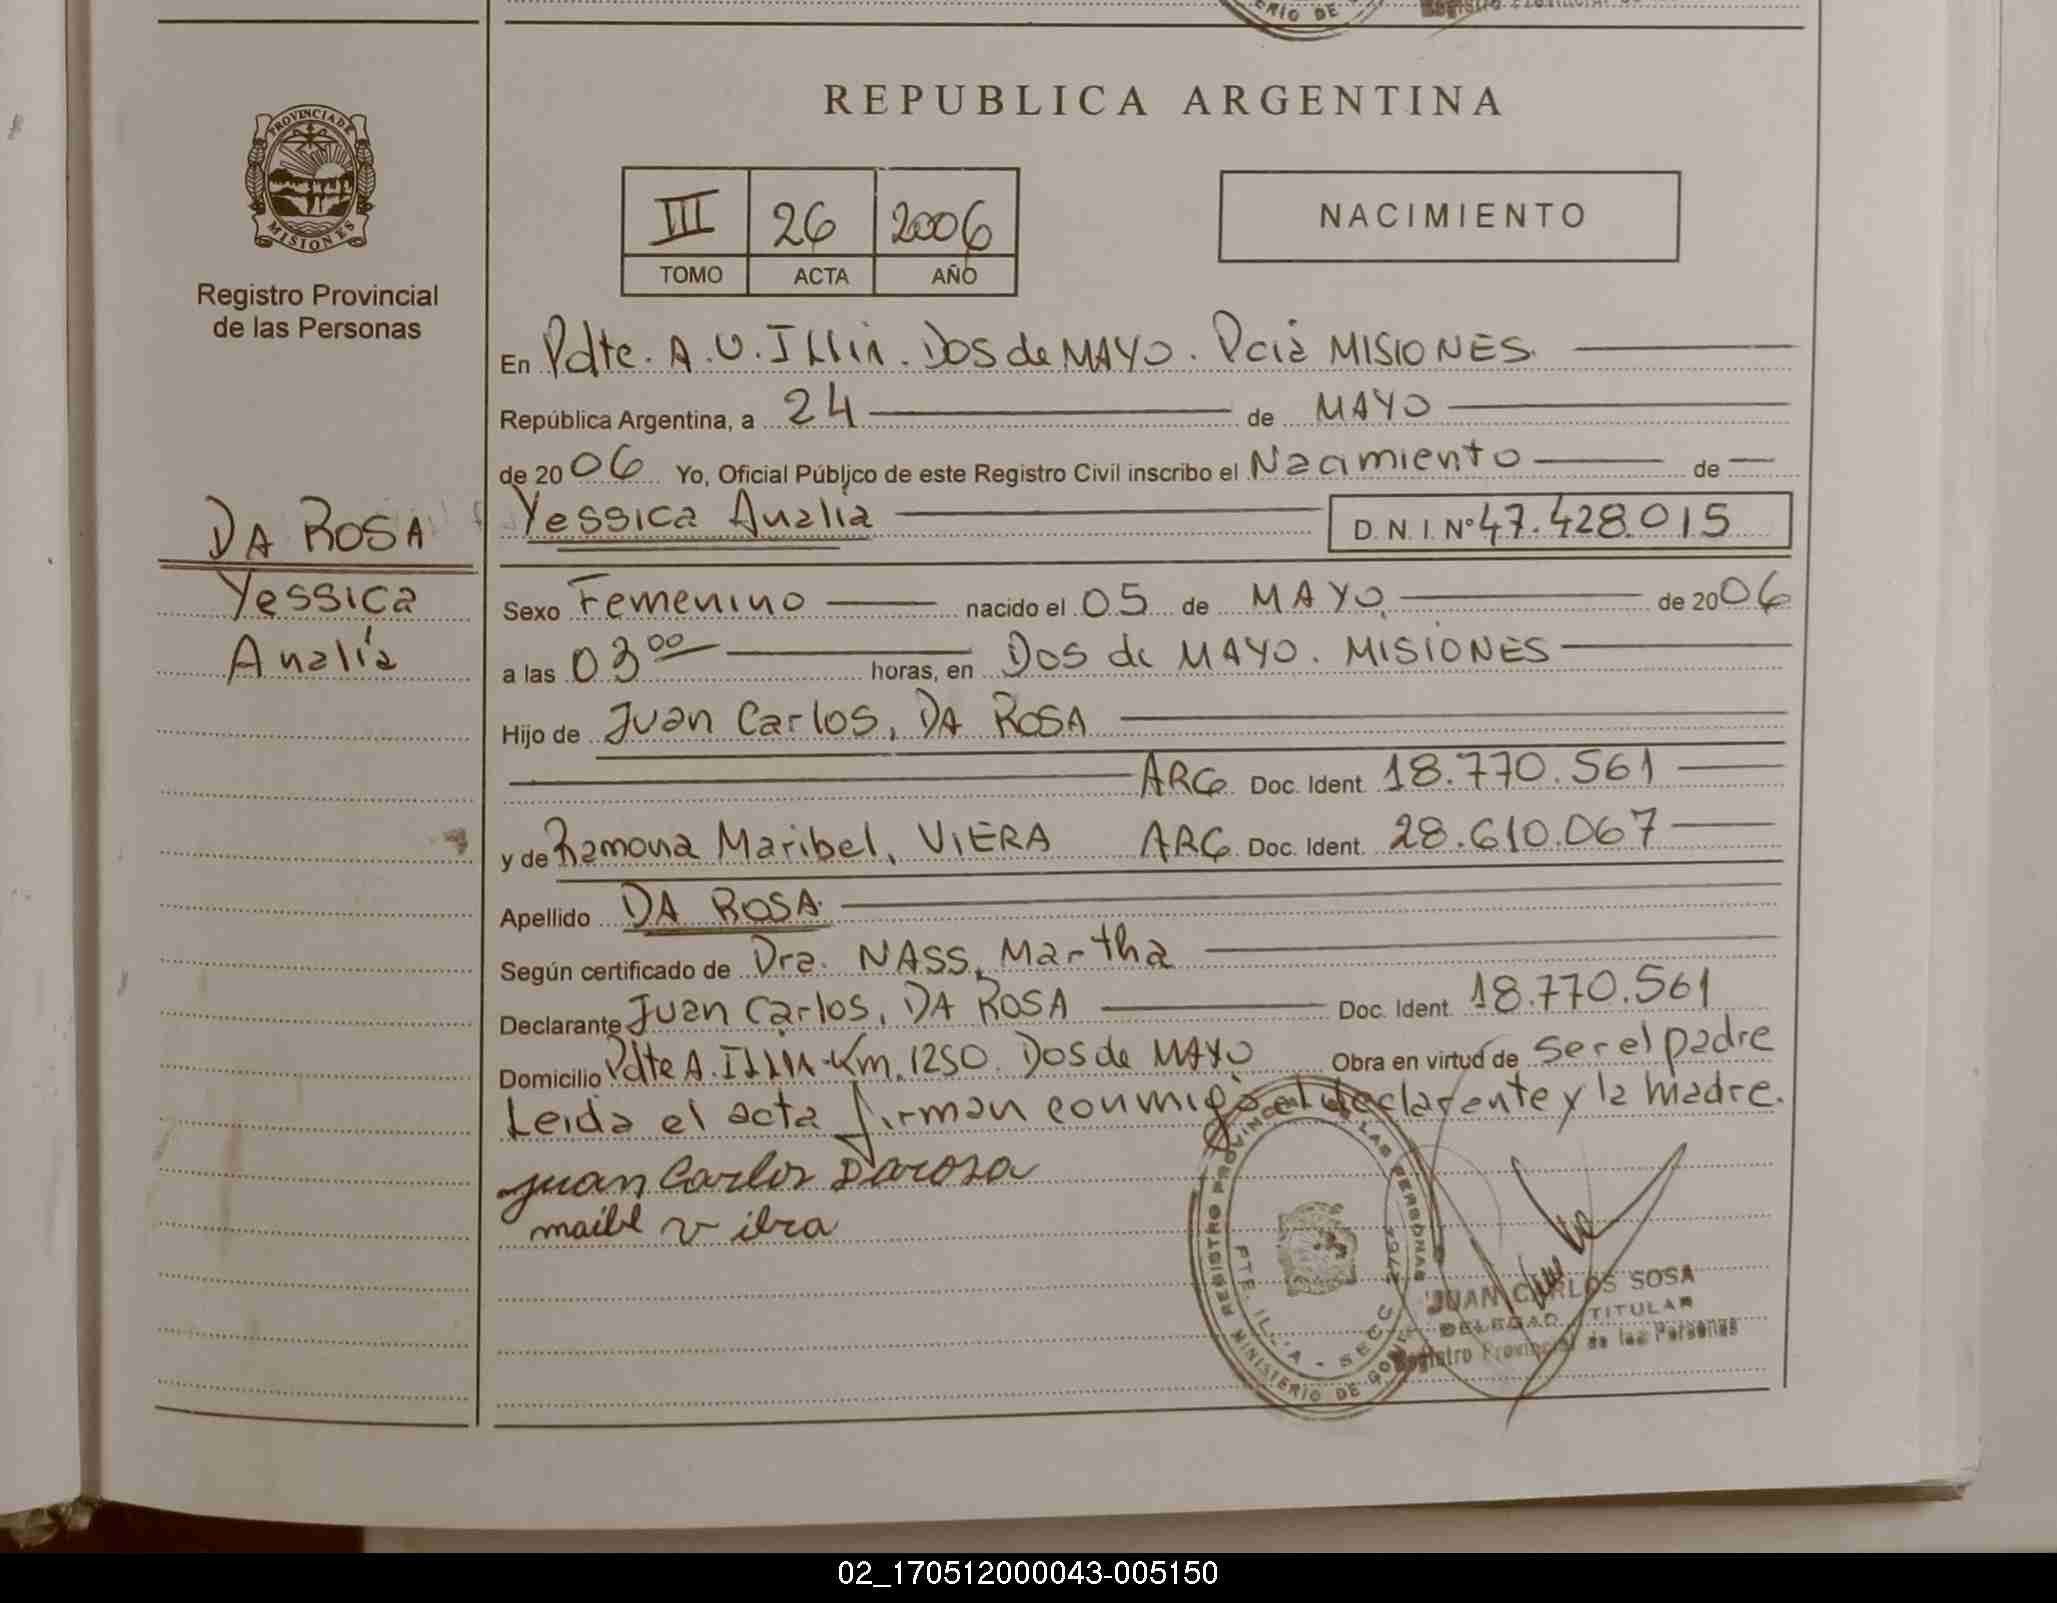 REPUBLICA ARGENTINA
PROVINCIA DE MISIONES
Registro Provincial
de las Personas
III 26 2006
TOMO ACTA AÑO
NACIMIENTO
En Pdte. A. U. Illia. Dos de MAYO. Pcia MISIONES.
República Argentina, a 24 de MAYO
de 2006 Yo, Oficial Público de este Registro Civil inscribo el Nacimiento de
DA ROSA
Yessica Analia D.N.I. Nº 47.428.015
Yessica
Sexo Femenino nacido el 05 de MAYO de 2006
Analía
a las 03 00 horas, en Dos de MAYO. MISIONES
Hijo de Juan Carlos, DA ROSA
ARG. Doc. Ident. 18.770.561
y de Ramona Maribel, VIERA ARG. Doc. Ident. 28.610.067
Apellido DA ROSA
Según certificado de Dra. NASS, Martha
Declarante Juan Carlos, DA ROSA Doc. Ident. 18.770.561
Domicilio Pdte A. Illia - Km. 1250. Dos de MAYO Obra en virtud de ser el padre
Leida el acta firman conmigo el declarante y la madre.
Juan Carlos Darosa
REGISTRO PROVINCIAL DE LAS PERSONAS
MINISTERIO DE
PTE. ILLIA - SECC
JUAN CARLOS SOSA
DELEGADO TITULAR
Registro Provincial de las Personas
02_170512000043-005150